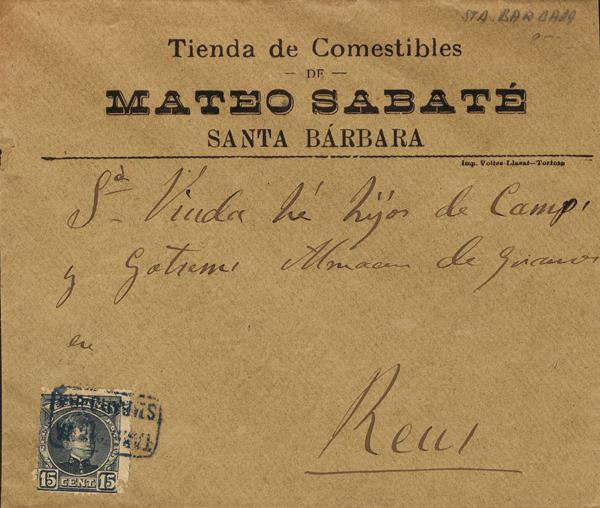 STA. BARBARA
Tienda de Comestibles
— DE —
MATEO SABATÉ
SANTA BÁRBARA
Imp. Voltes-Llasat—Tortosa
Sª Viuda hé hijos de Camp
y Almacen de
en
Reus
15 CENT. 15